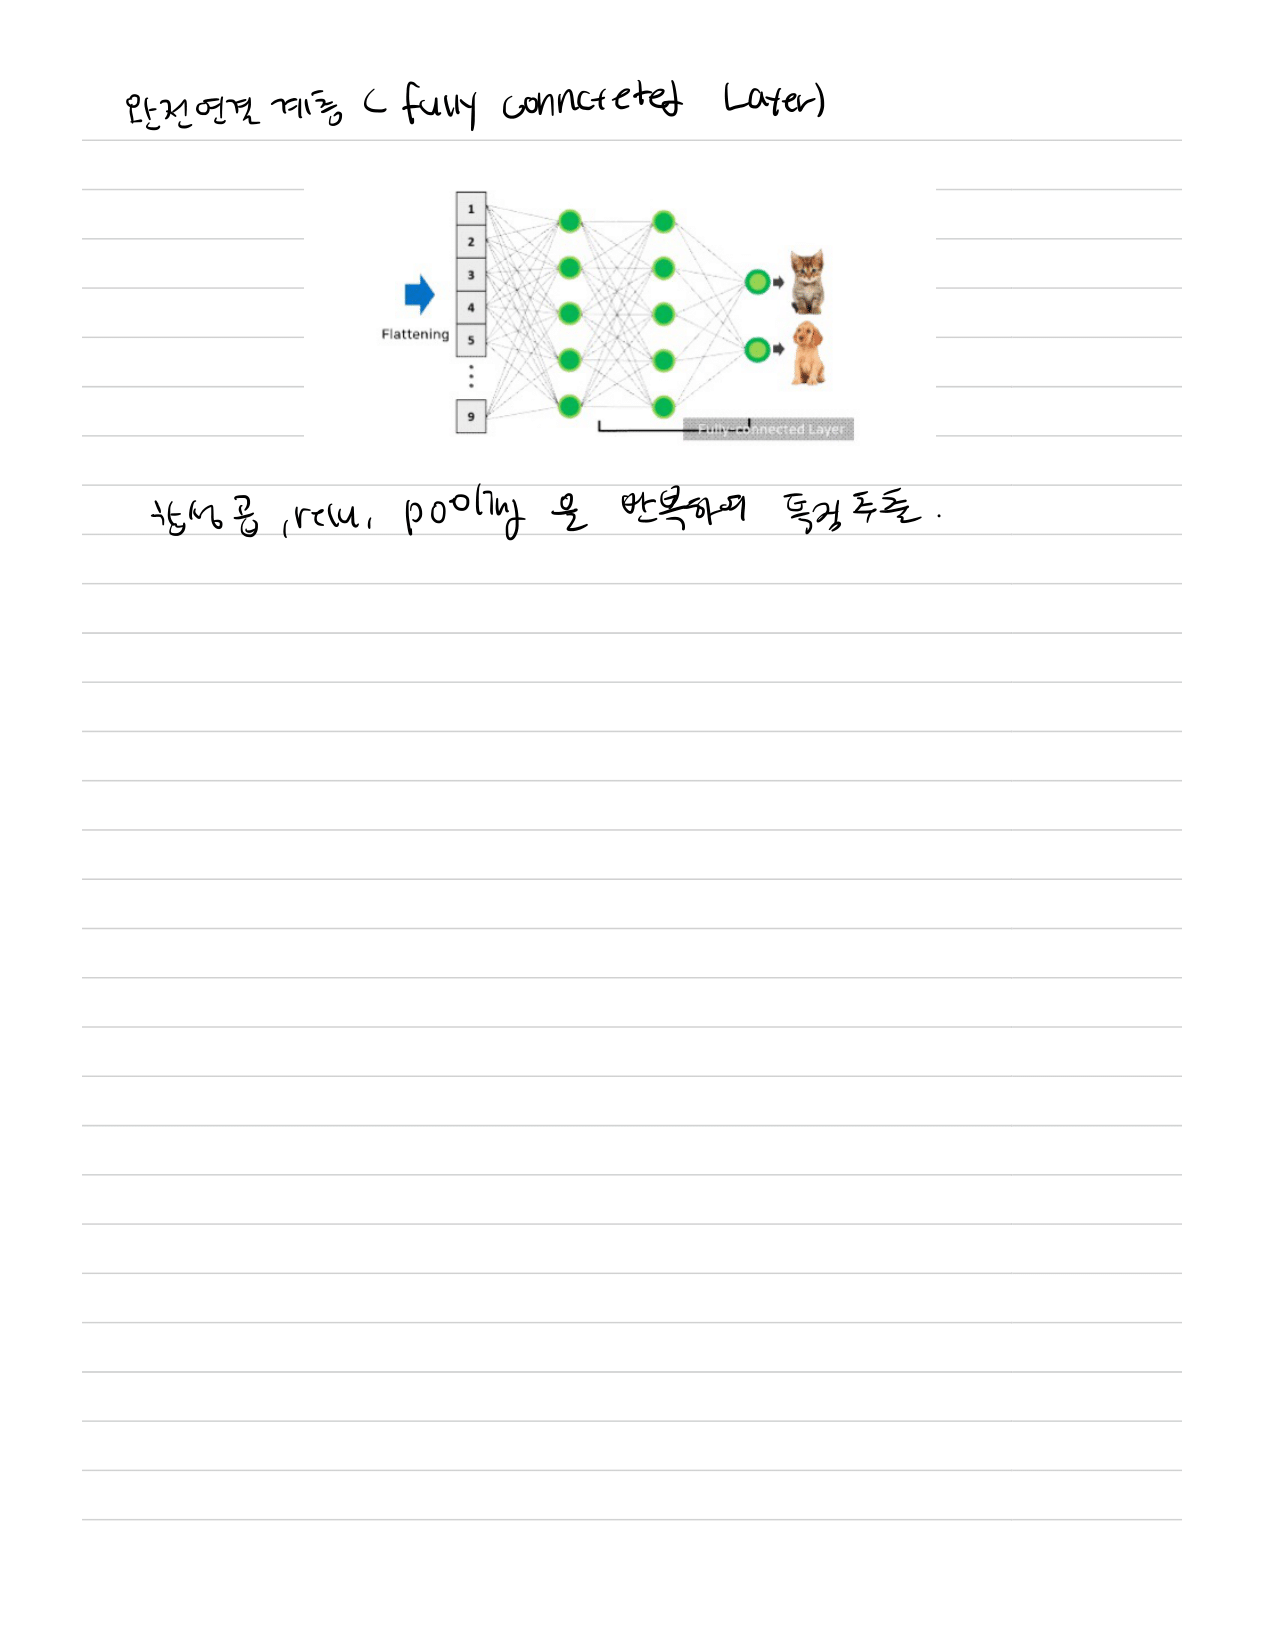 완전연결 계층 ( fully conncteted Layer)
1
2
3
4
Flattening
5
9
Fully-connected Layer
합성곱, relu, pooling 을 반복하며 특징추출.